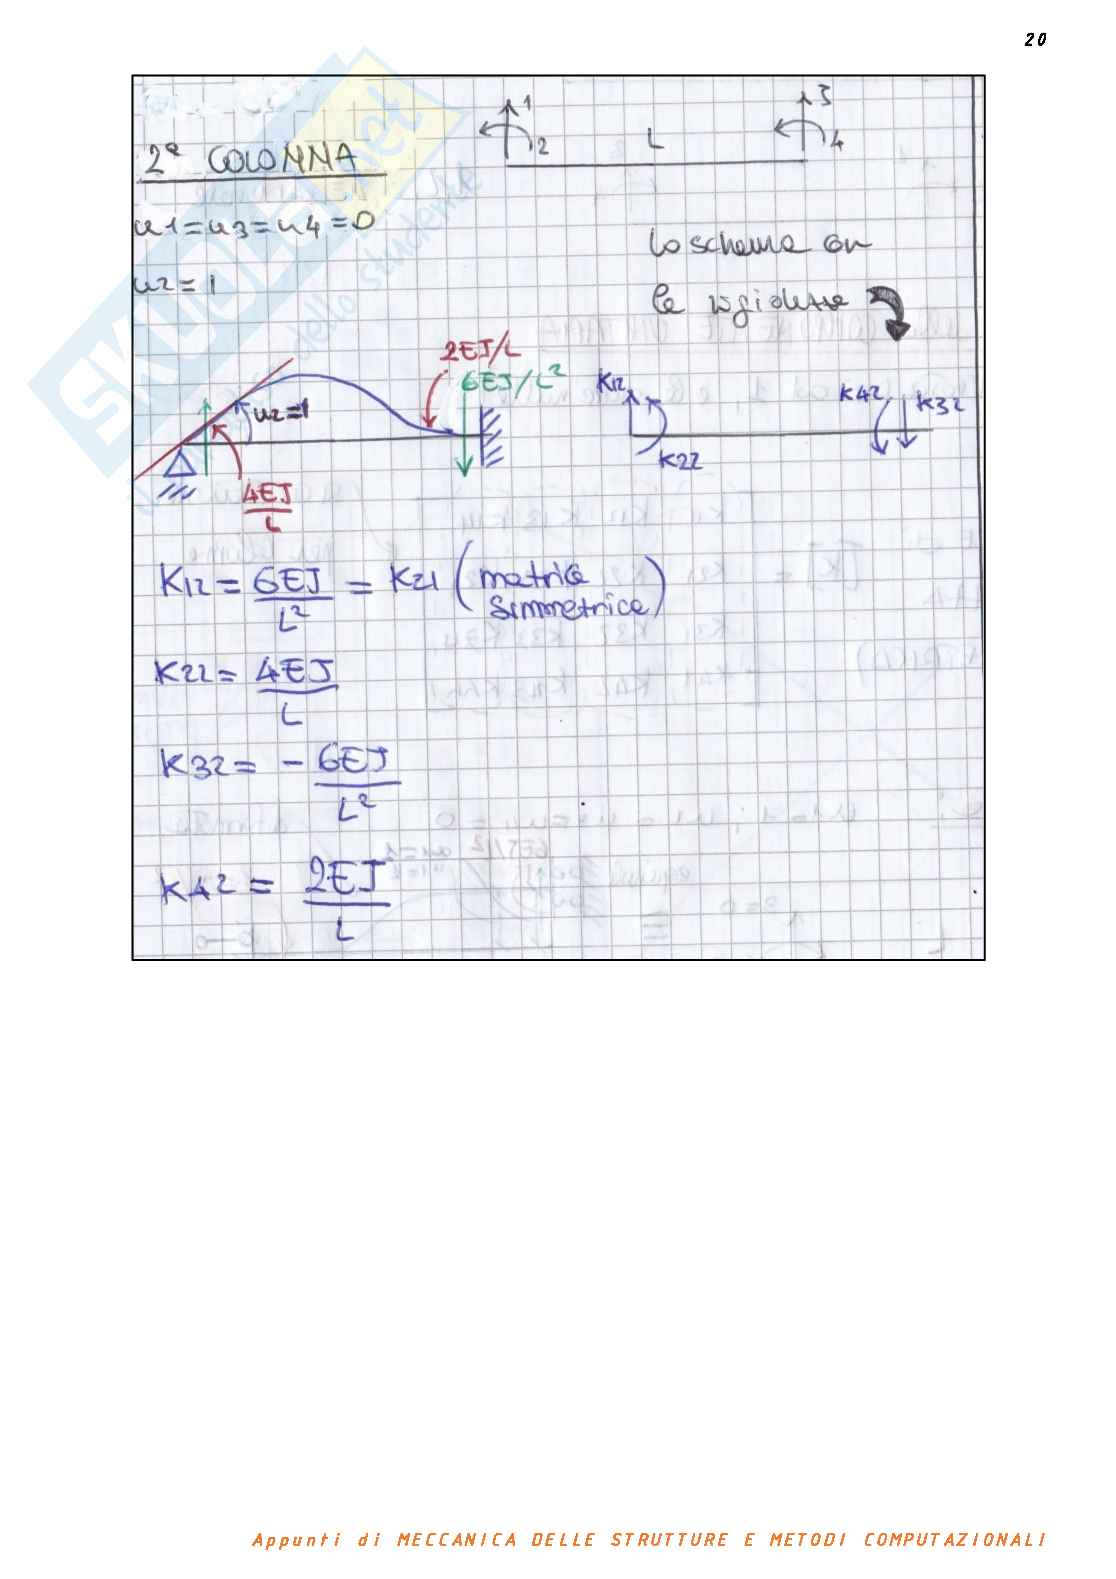 20
1
3
2
4
L
2ª COLONNA
u1=u3=u4=0
u2=1
lo schema con
le rigidezze
2EJ/L
6EJ/L²
u2=1
4EJ/L
K12
K22
K42
K32
K12 = 6EJ/L² = K21 (matrice simmetrica)
K22 = 4EJ/L
K32 = - 6EJ/L²
K42 = 2EJ/L
SKUOLA.net
dello studente
Appunti di MECCANICA DELLE STRUTTURE E METODI COMPUTAZIONALI